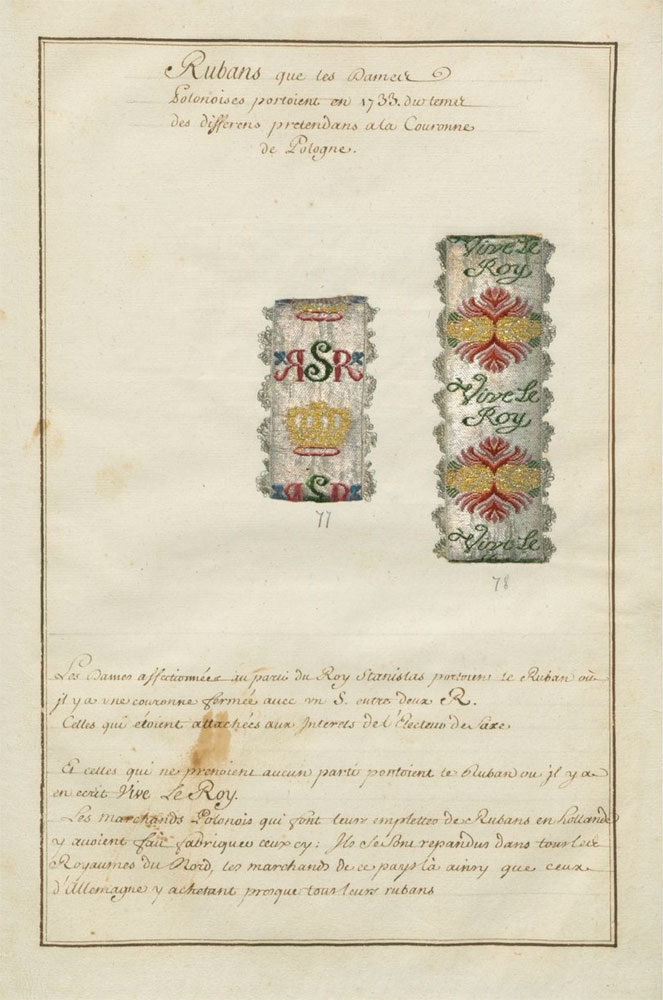 Rubans que les Dames
Polonoises portoient en 1733. du tems
des differens pretendans a la Couronne
de Pologne.
Vive Le
Roy
RSR
Vive Le
Roy
S
77
Vive Le
78
Les Dames affectionnées au parti du Roy Stanislas portoient le Ruban où
jl y a vne couronne fermée avec vn S. entre deux R.
Celles qui étoient attachées aux Interets de l'Electeur de Saxe
Et celles qui ne prenoient aucun parti portoient le Ruban ou jl y a
en ecrit Vive Le Roy.
Les marchands Polonois qui font leurs emplettes de Rubans en hollande
y avoient fait fabriquer ceux cy: Ils se sont repandus dans tous les
Royaumes du Nord, les marchands de ce pays là ainsy que ceux
d'Allemagne y achetant presque tous leurs rubans